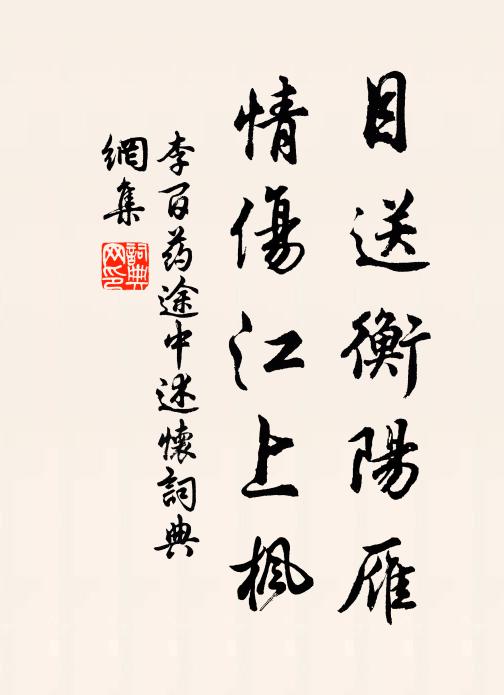 目送衡陽雁
情傷江上楓
李百药途中述懷詞典
網集
詞典
网印